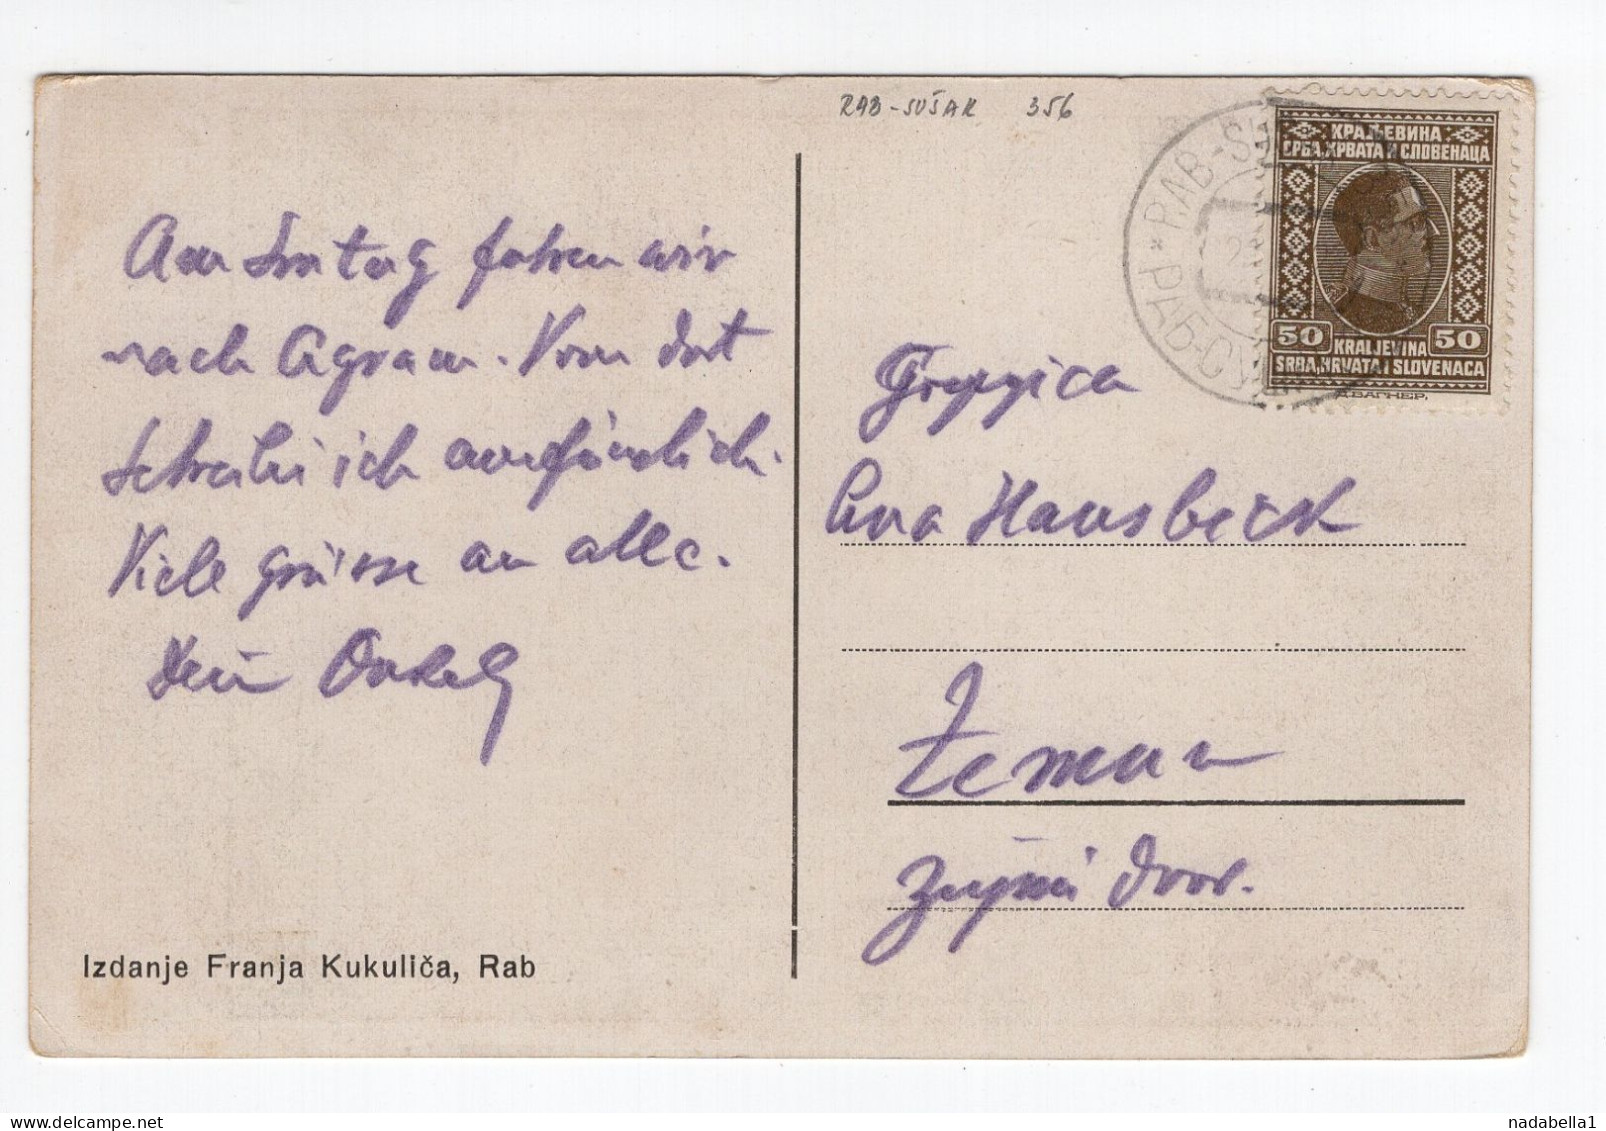 RAB-SUŠAK 356
Am Sontag fahren wir
nach Agram. Von dort
schreibe ich ausführlich.
Viele grüsse an alle.
Dein Onkel
Izdanje Franja Kukuliča, Rab
* RAB-SU
РАБ-СУ
КРАЉЕВИНА
СРБА, ХРВАТА И СЛОВЕНАЦА
50 50
KRALJEVINA
SRBA, HRVATA I SLOVENACA
Д.ВАГНЕР,
Gospojica
Eva Hausbeck
Zemun
dvor.
nadabella1